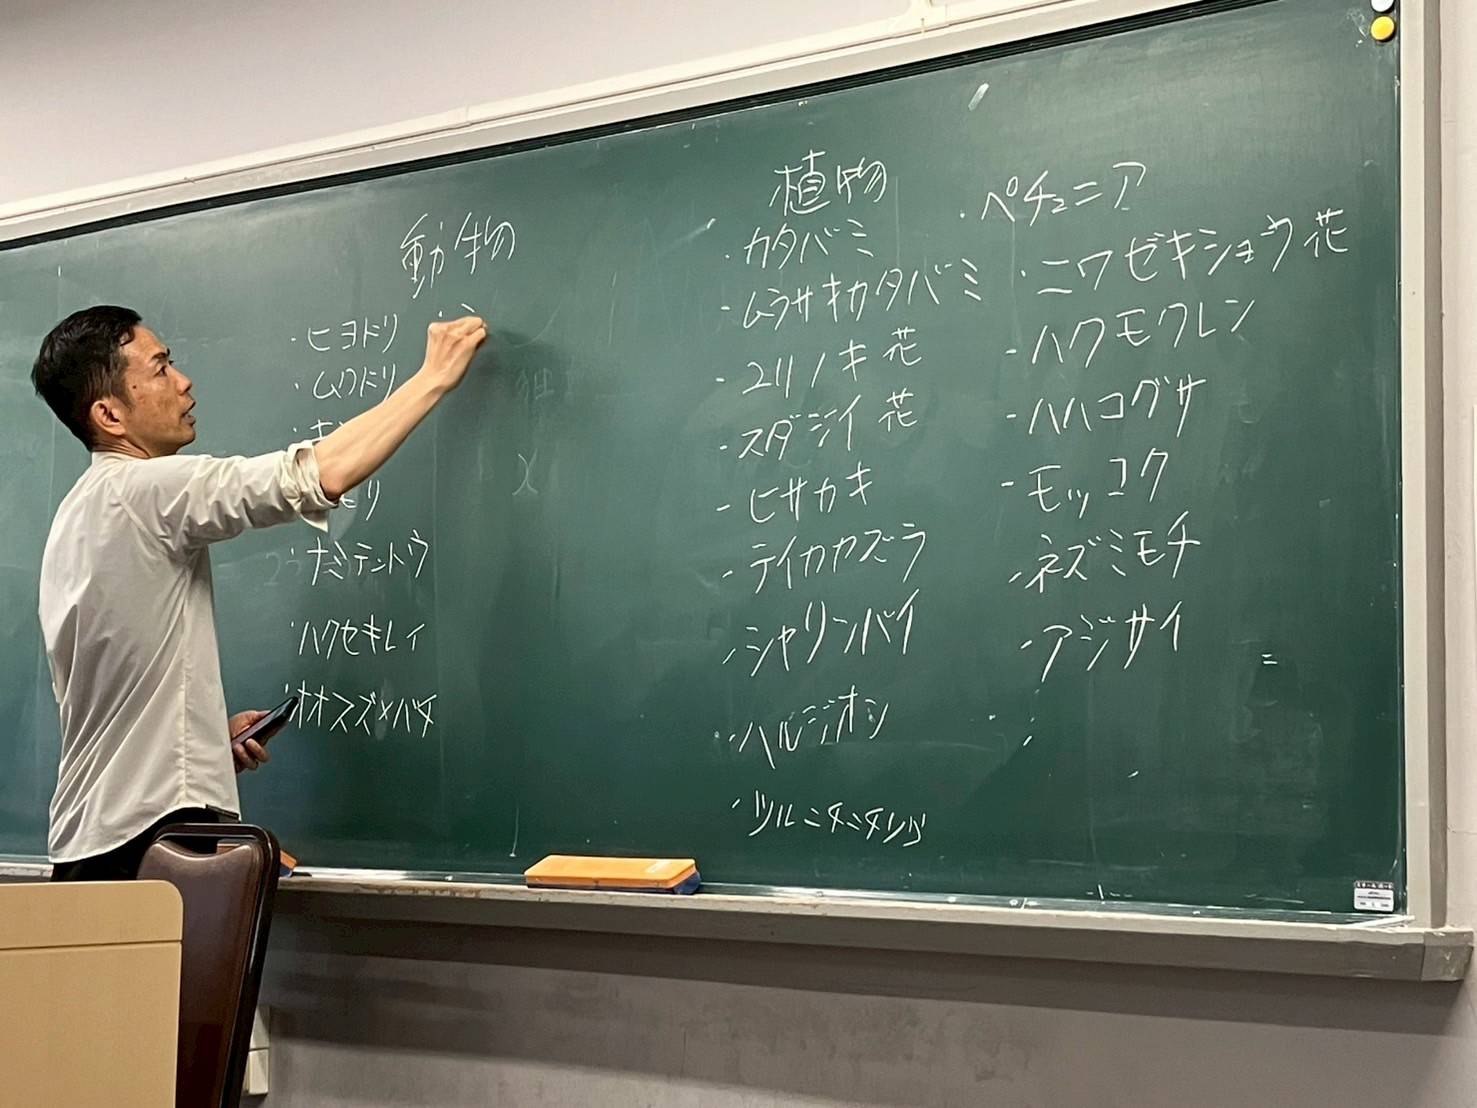 動物
・ヒヨドリ
・ムクドリ
・ナミテントウ
・ハクセキレイ
・オオスズメバチ
植物
・カタバミ
・ムラサキカタバミ
・ユリノキ花
・スダジイ花
・ヒサカキ
・テイカカズラ
・シャリンバイ
・ハルジオン
・ツルニチニチソウ
・ペチュニア
・ニワゼキショウ花
・ハクモクレン
・ハハコグサ
・モッコク
・ネズミモチ
・アジサイ